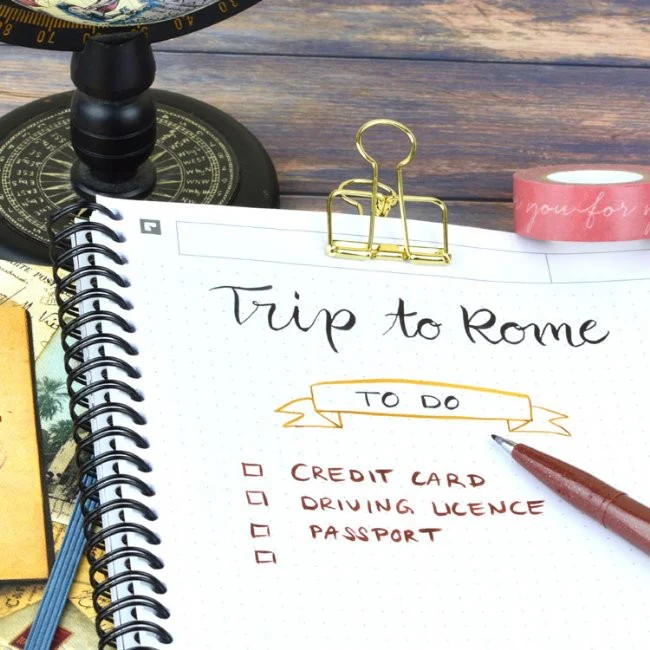 70
60
you for
Trip to Rome
TO DO
CREDIT CARD
DRIVING LICENCE
PASSPORT